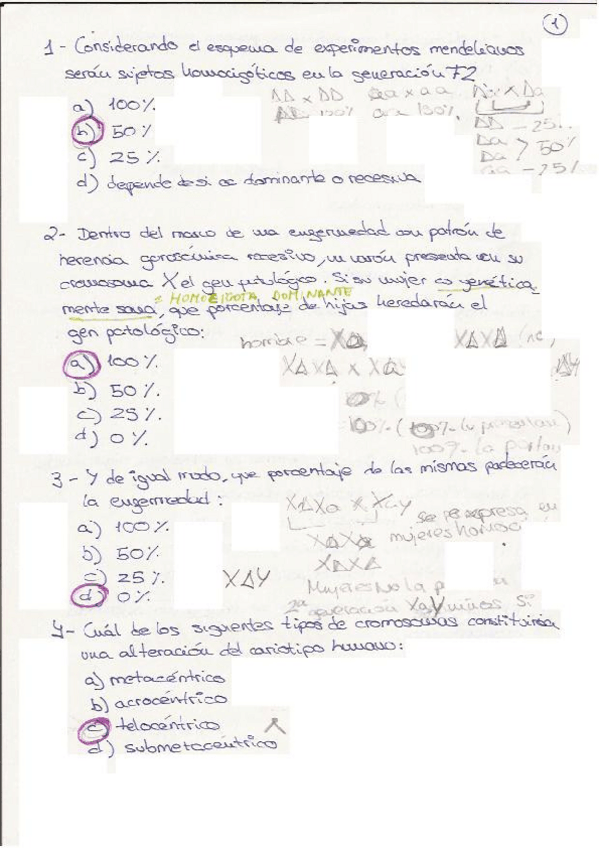 1
1- Considerando el esquema de experimentos mendelianos
serán sujetos homocigóticos en la generación F2
AA x AA aa x aa Aa x Aa
a) 100%. AA 100% aa 100%.
AA - 25%
b) 50%
Aa > 50%
Aa
c) 25%.
aa - 25%
d) depende de si es dominante o recesiva
2- Dentro del marco de una enfermedad con patrón de
herencia gonosómica recesivo, un varón presenta en su
cromosoma X el gen patológico. Si su mujer es genética-
= HOMOZIGOTA DOMINANTE
mente sana, que porcentaje de hijas heredarán el
gen patológico:
hombre = Xa
XAXA
a) 100%.
XAXA x Xa
AY
b) 50%.
0%
c) 25%.
100% (100% la portan)
d) 0%.
100% la portan
3- Y de igual modo, que porcentaje de las mismas padecerán
la enfermedad:
XAXa x XaY
a) 100%.
se expresa en
mujeres homoc
XAXa
b) 50%.
XAXA
c) 25%.
XAY
Mujeres No la p
d) 0%.
2ª generación XaY niños Sí
4- Cuál de los siguientes tipos de cromosomas constituiría
una alteración del cariotipo humano:
a) metacéntrico
b) acrocéntrico
c) telocéntrico
d) submetacéntrico